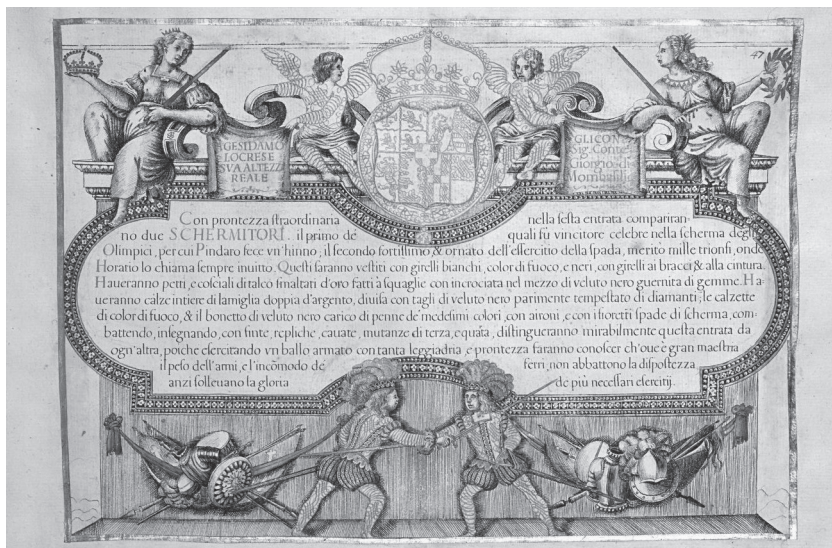 47
EGESIDAMO
LOCRESE
SVA ALTEZZ
REALE
GLICON
Sig. Conte
Giorgio di
Con prontezza ſtraordinaria nella ſeſta entrata compariran-
no due SCHERMITORI. il primo de quali fù vincitore celebre nella ſcherma degli
Olimpici, per cui Pindaro fece vn'hinno, il ſecondo ſottiliſſimo & ornato dell'eſſercitio della ſpada, merito mille trionfi, onde
Horatio lo chiama ſempre inuitto. Queſti ſaranno veſtiti con girelli bianchi, color di fuoco, e neri, con girelli ai bracci & alla cintura.
Haueranno petti, e coſciali di talco ſmaltati d'oro fatti à ſquaglie con incrociata nel mezzo di veluto nero guernita di gemme. Ha-
ueranno calze intiere di lamiglia doppia d'argento, diuiſa con tagli di veluto nero parimente tempeſtato di diamanti, le calzette
di color di fuoco, & il bonetto di veluto nero carico di penne de' medeſimi colori, con aironi, e con i fioretti ſpade di ſcherma, com-
battendo, inſegnando, con finte, repliche, cauate, mutanze di terza, e quarta, diſtingueranno mirabilmente queſta entrata da
ogn'altra, poiche eſercitando vn ballo armato con tanta leggiadria, e prontezza faranno conoſcer ch'oue è gran maeſtria
il peſo dell'armi, e l'incōmodo de ferri, non abbattono la diſpoſtezza
anzi ſolleuano la gloria de più neceſſari eſercitij.